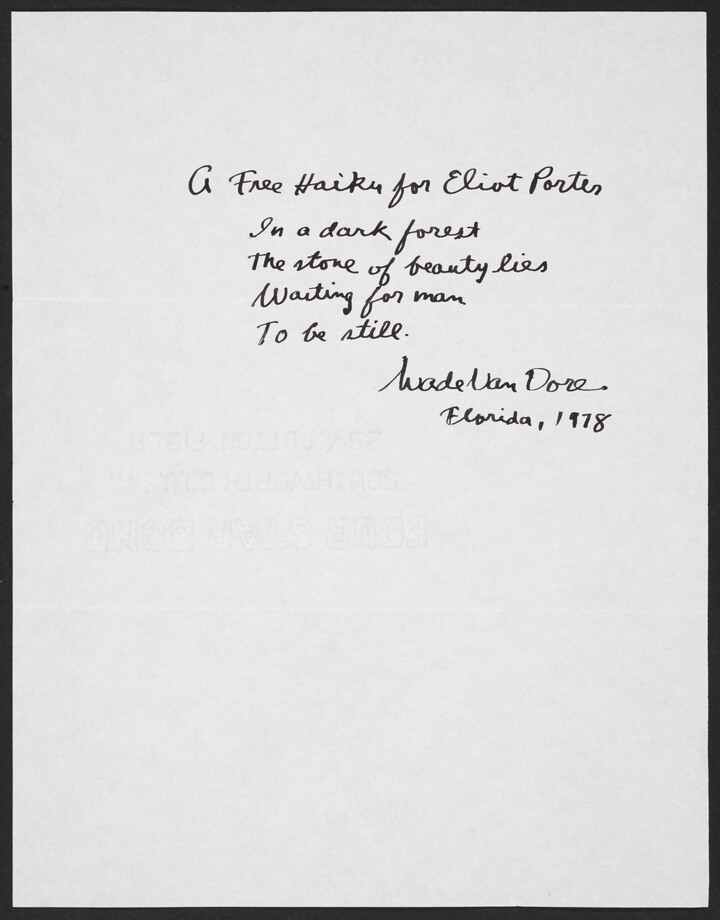 A Free Haiku for Eliot Porter
In a dark forest
The stone of beauty lies
Waiting for man
To be still.
Wade Van Dore
Florida, 1978
FOUR STAR BOND
SOUTHWORTH CO. U.S.A.
COTTON FIBER